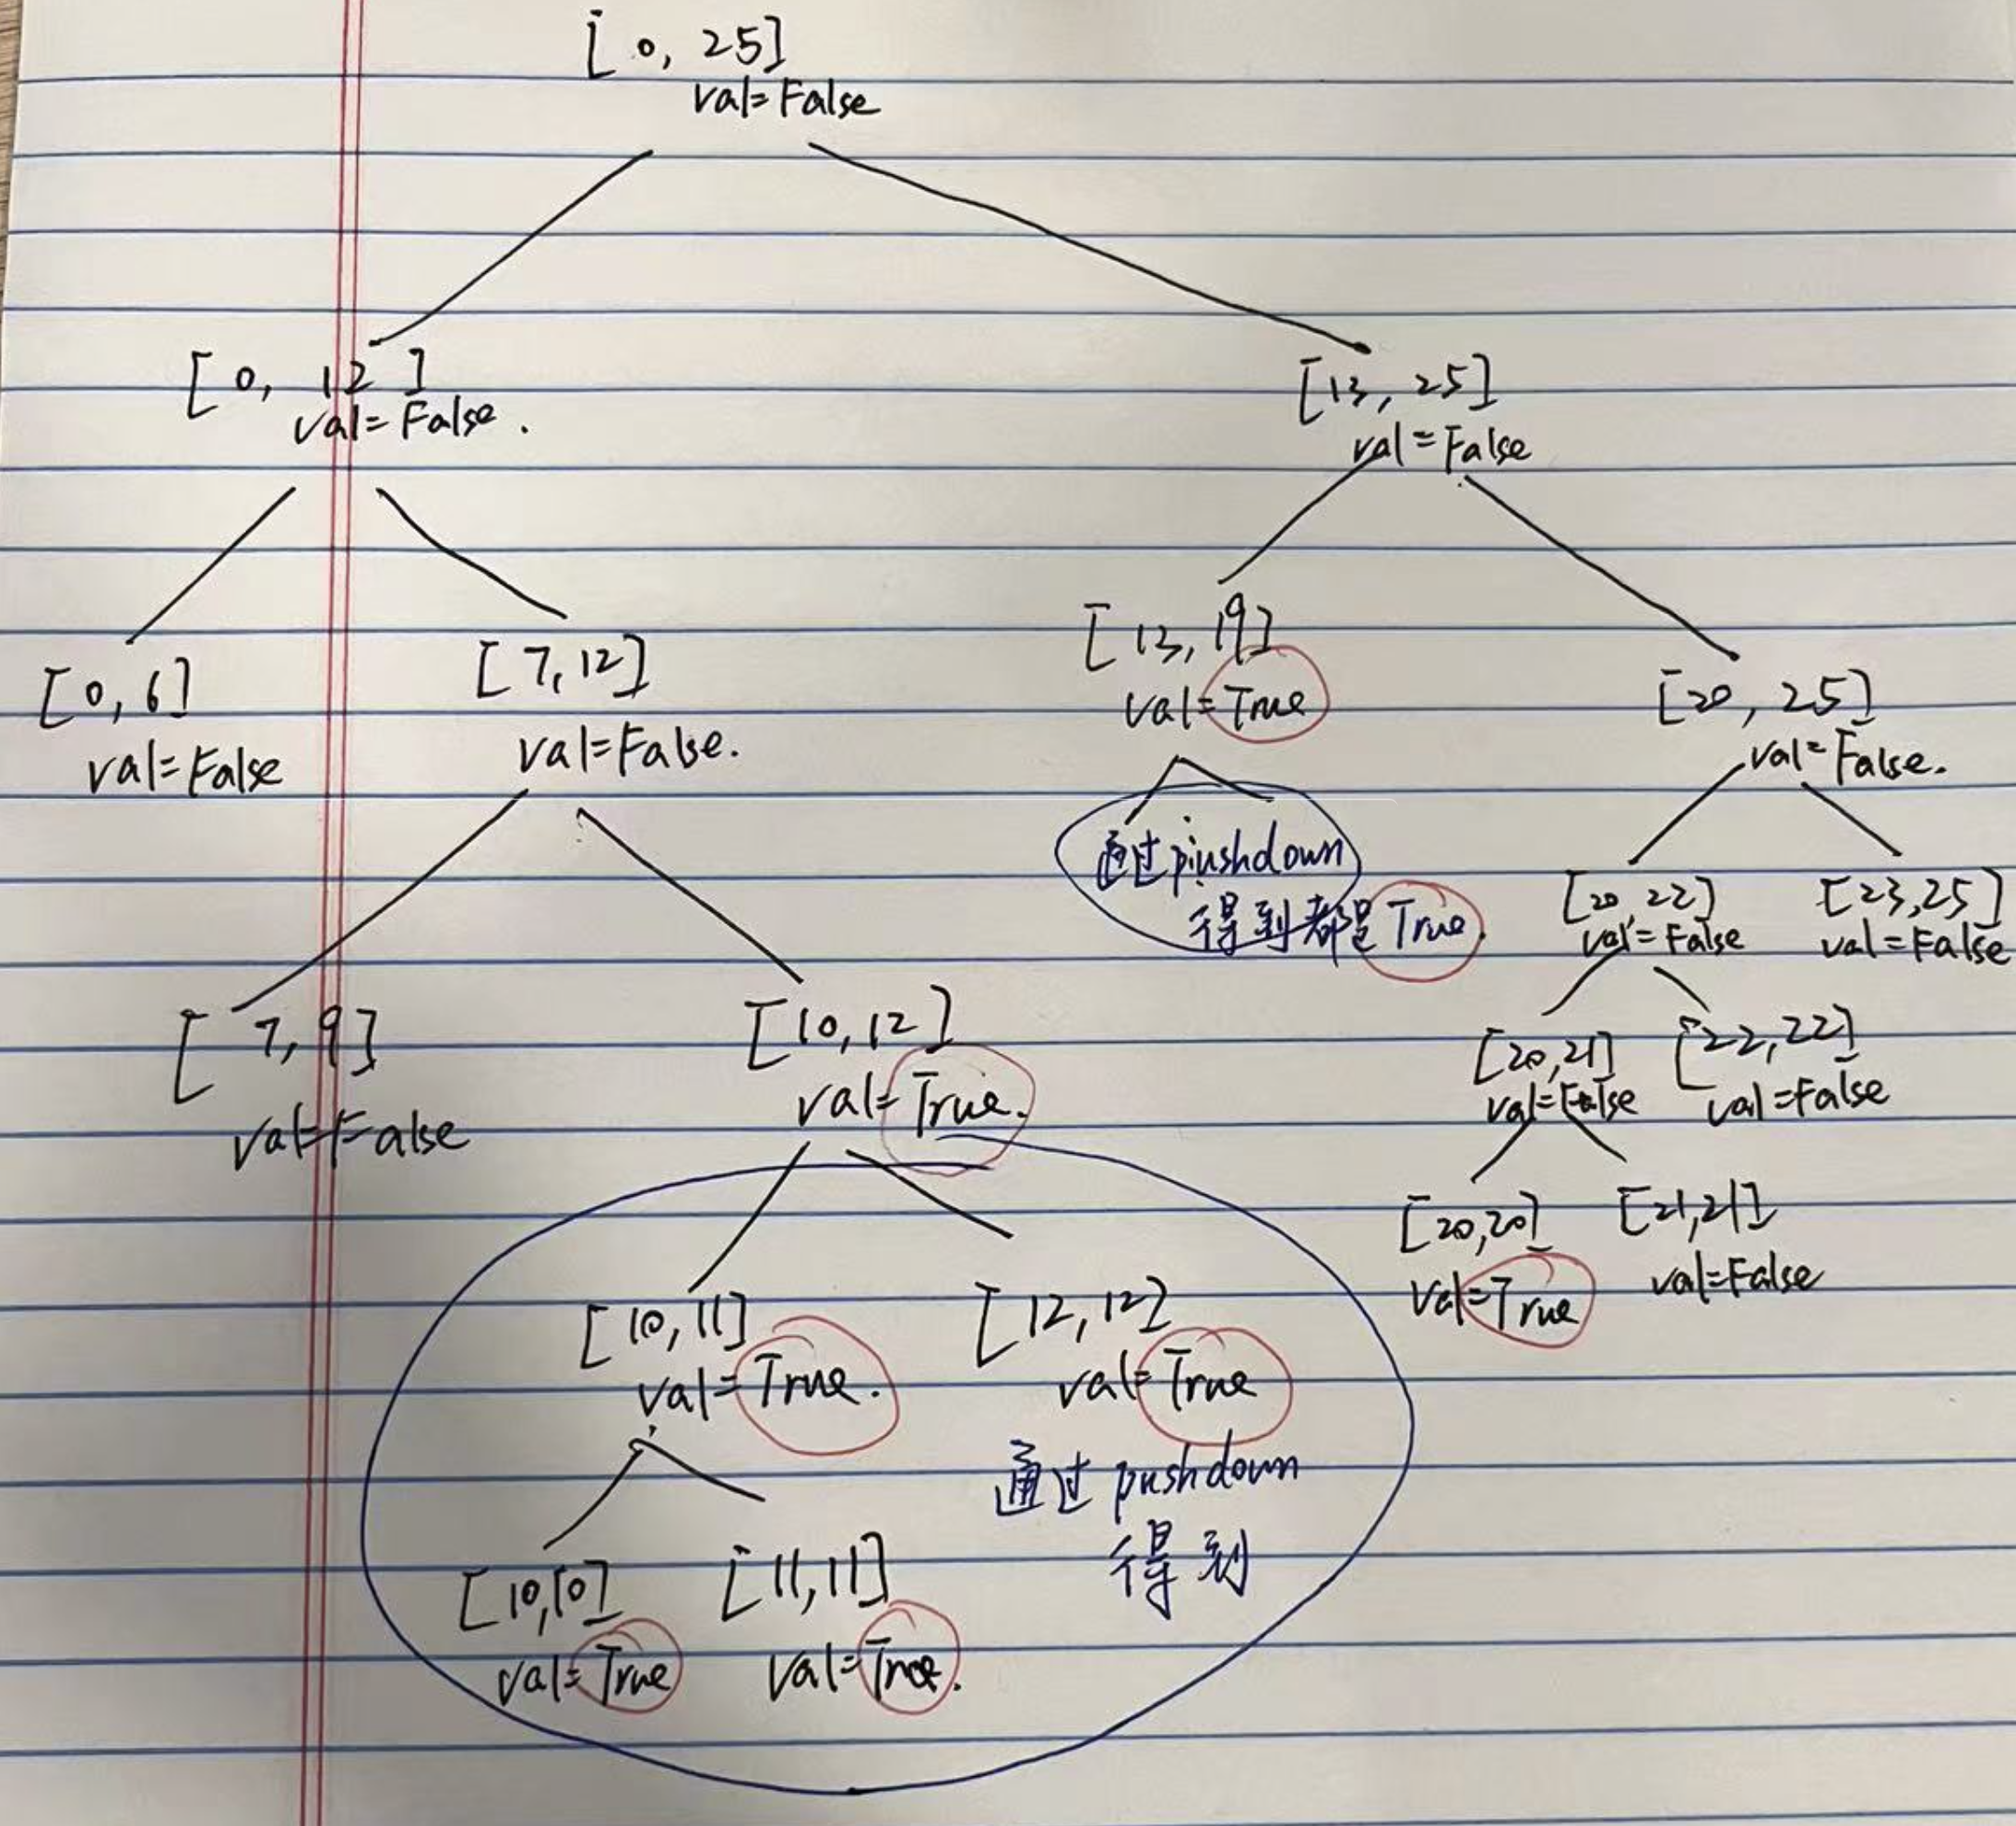 [0, 25]
val=False
[0, 12]
val=False.
[13, 25]
val=False
[0,6]
val=False
[7,12]
val=False.
[13,19]
val=True
[20, 25]
val=False.
通过pushdown
得到都是True.
[20,22]
val=False
[23,25]
val=False
[7,9]
val=False
[10,12]
val=True.
[20,21]
val=False
[22,22]
val=False
[20,20]
val=True
[21,21]
val=False
[10,11]
val=True.
[12,12]
val=True
通过pushdown
得到
[10,10]
val=True
[11,11]
val=True.